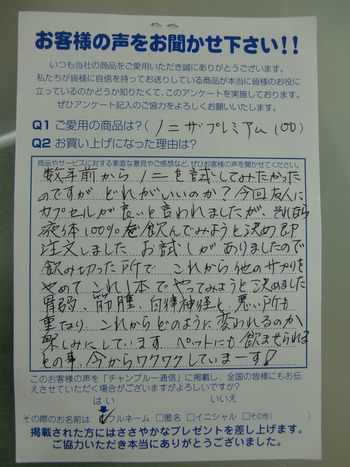 お客様の声をお聞かせ下さい!!
いつも当社の商品をご愛用いただき誠にありがとうございます。
私たちが皆様に自信を持ってお送りしている商品が本当に皆様のお役に
立っているのかどうか知りたくて、このアンケートを実施しております。
ぜひアンケート記入のご協力をよろしくお願いいたします。
Q1 ご愛用の商品は?(ノニ ザ プレミアム 100)
Q2 お買い上げになった理由は?
商品やサービスに対する素直な意見やご感想など、ぜひお客様の声を聞かせてください。
数年前から ノニを試してみたかった
のですが どれがいいのか? 今回友人に
カプセルが良いと言われましたが、それなら
液体100%を飲んでみようと決め即
注文しました お試しがありましたので
飲み切った所で これから他のサプリを
やめて これ1本でやってみようと決めました
胃弱、筋腫、自律神経と 悪い所も
重なり これからどのように変われるのか
楽しみにしています ペットにも飲ませられる
との事、今からワクワクしていまーす♪
このお客様の声を「チャンプルー通信」に掲載し、全国の皆様にもお伝
えさせていただく場合がございますがよろしいですか?
はい いいえ
その際のお名前は フルネーム □匿名 □イニシャル □その他( )
掲載された方にはささやかなプレゼントを差し上げます。
ご協力いただき本当にありがとうございました。